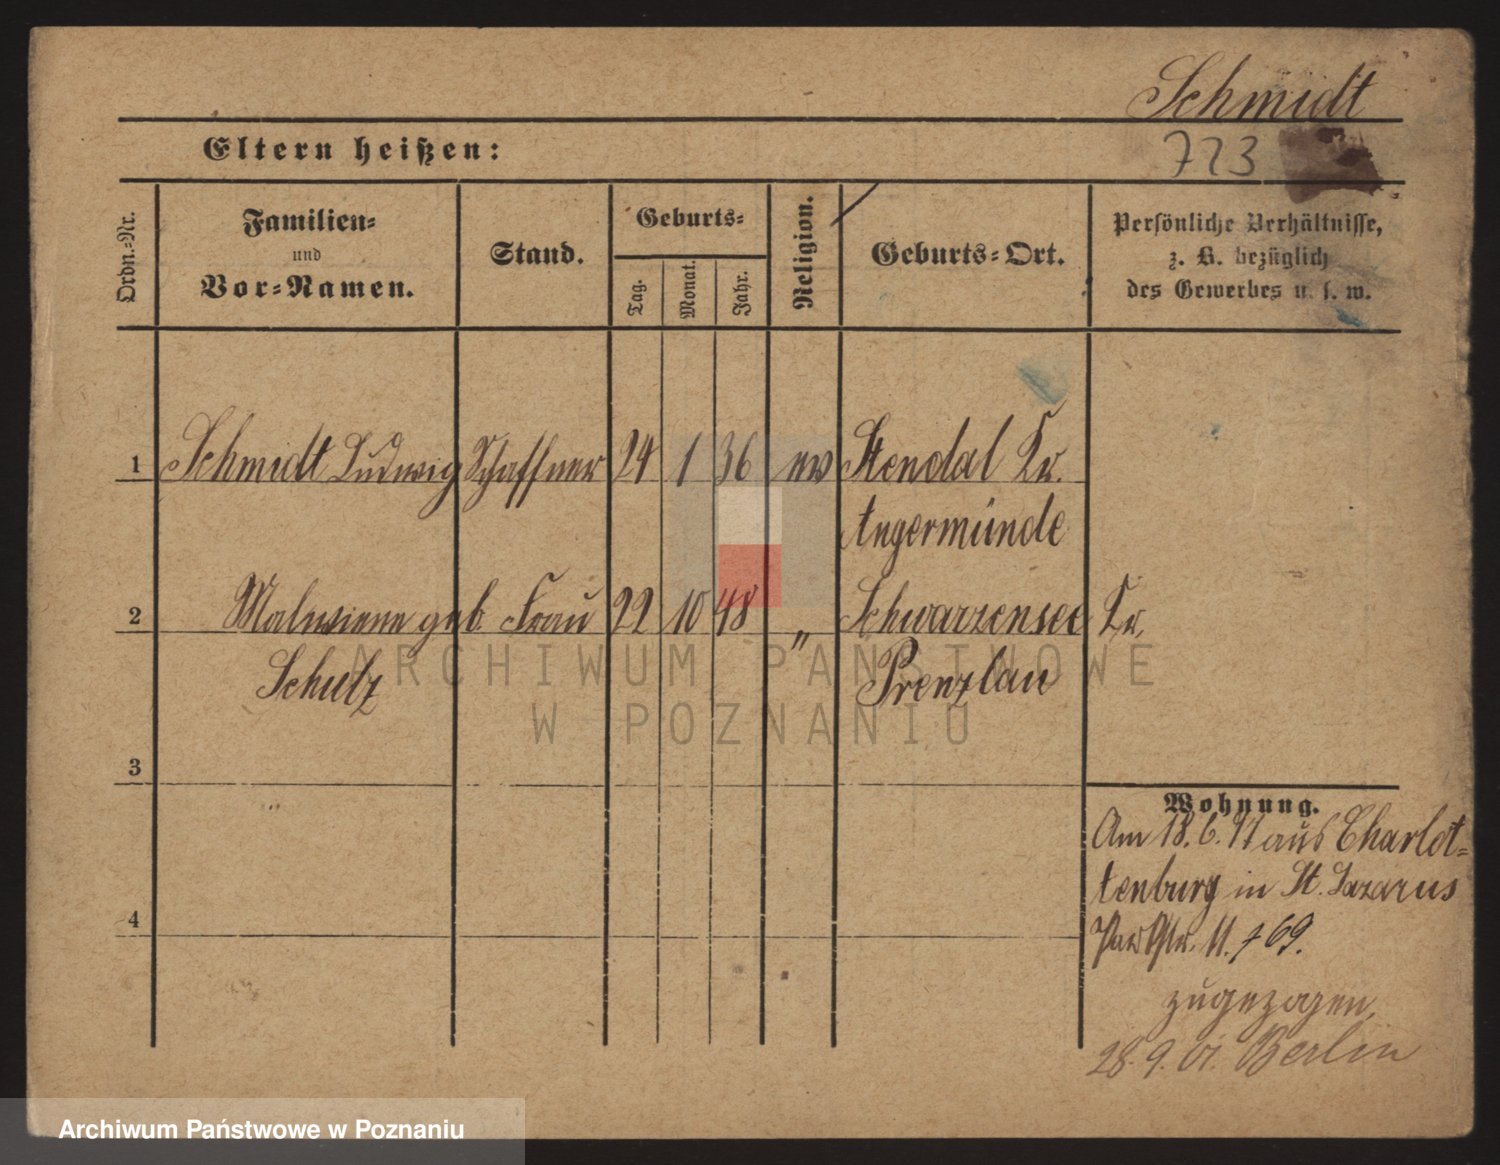 Schmidt
Eltern heißen:
723
Ordn.-Nr.
Familien-
und
Vor-Namen.
Stand.
Geburts-
Tag.
Monat.
Jahr.
Religion.
Geburts-Ort.
Persönliche Verhältnisse,
z. B. bezüglich
des Gewerbes u. s. w.
1 Schmidt Ludwig Schaffner 24 1 36 ev Stendal Kr.
Angermünde
2 Malwiene geb. Frau 22 10 48 " Schwarzensee Kr.
Schulz Prenzlau
ARCHIWUM PAŃSTWOWE
W POZNANIU
3
Wohnung.
Am 18. 6. 97 aus Charlot-
tenburg in St. Lazarus
4
Parkstr. 11. 69.
zugezogen,
28. 9. 01. Berlin
Archiwum Państwowe w Poznaniu